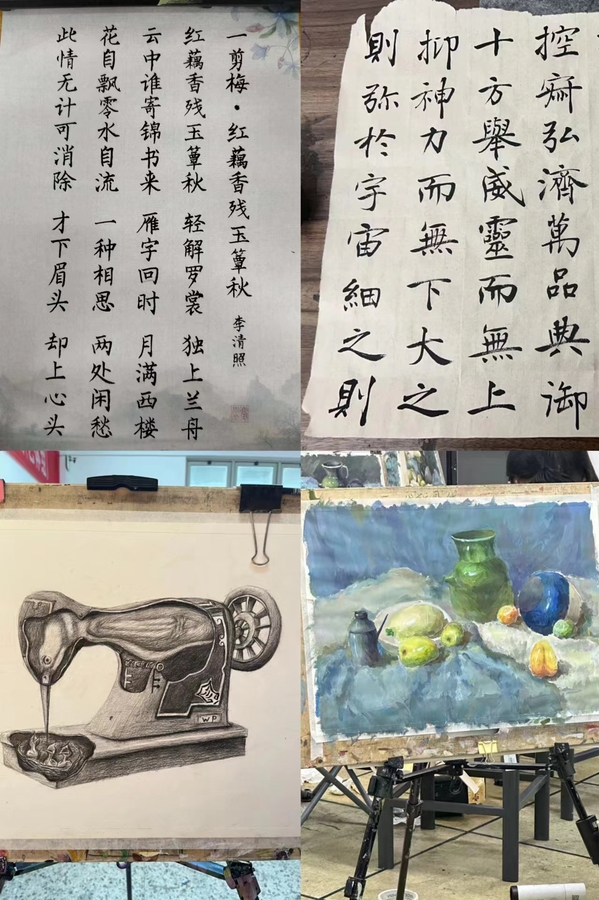 一剪梅·红藕香残玉簟秋 李清照
红藕香残玉簟秋 轻解罗裳 独上兰舟
云中谁寄锦书来 雁字回时 月满西楼
花自飘零水自流 一种相思 两处闲愁
此情无计可消除 才下眉头 却上心头
控寂弘濟萬品典御
十方舉威靈而無上
抑神力而無下大之
則弥於宇宙細之則
WP